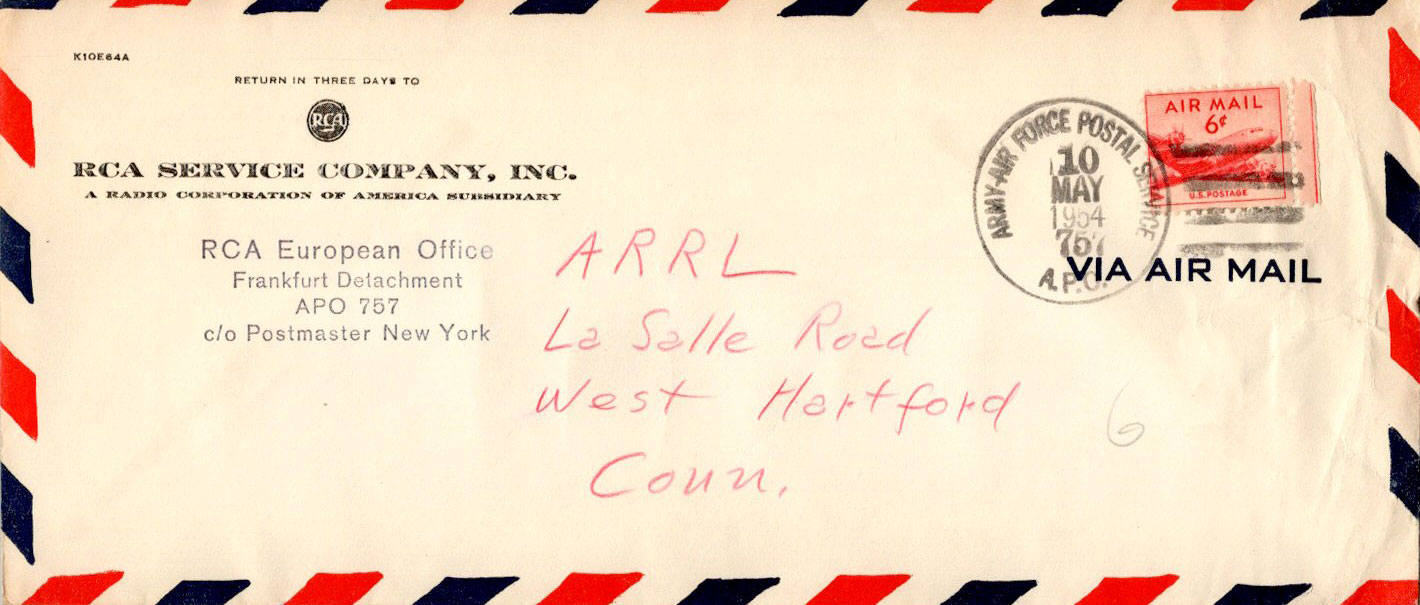 K10E64A
RETURN IN THREE DAYS TO
RCA
RCA SERVICE COMPANY, INC.
A RADIO CORPORATION OF AMERICA SUBSIDIARY
RCA European Office
Frankfurt Detachment
APO 757
c/o Postmaster New York
ARRL
La Salle Road
West Hartford
Conn.
ARMY-AIR FORCE POSTAL SERVICE
10
MAY
1954
757
A.P.O.
AIR MAIL
6¢
U.S. POSTAGE
VIA AIR MAIL
6